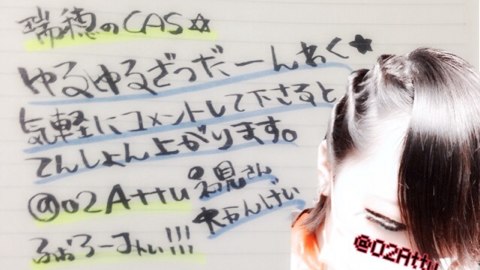 瑞穂のCAS☆
ゆるゆるざつだーんわく★
気軽にコメントして下さると
てんしょん上がります。
@02Attu
初見さん
大かんげい
ふぉろーみぃ!!!
@02Attu